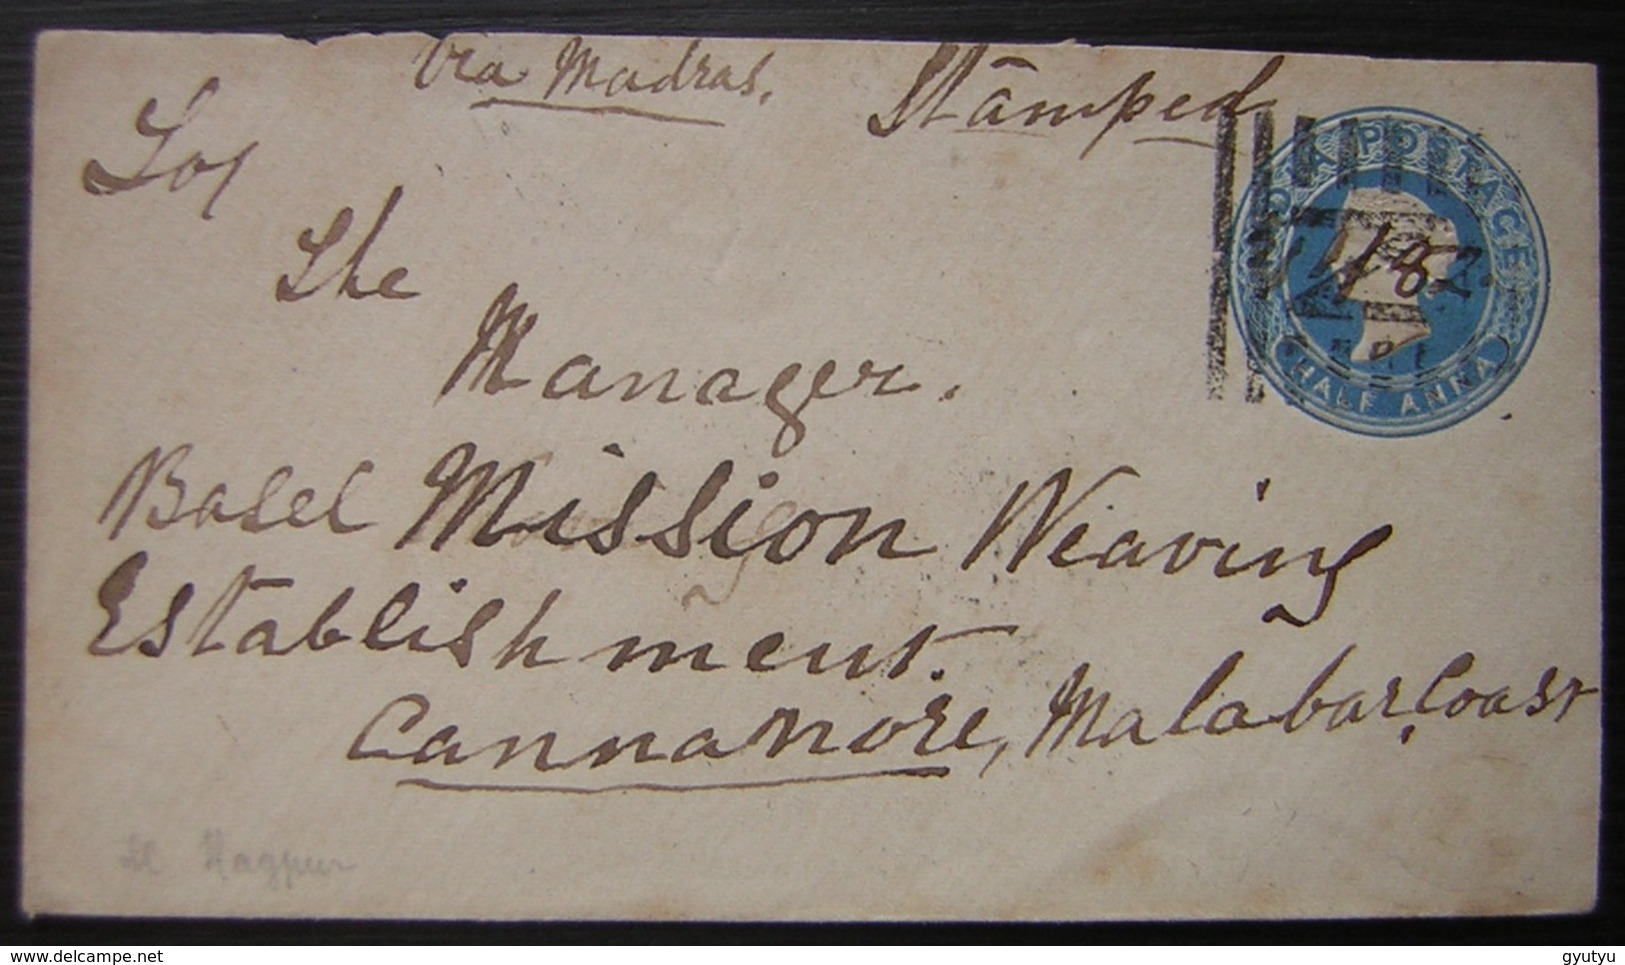 Via Madras.
Stamped
To,
The
Manager.
Basel Mission Weaving
Establishment.
Cannanore, Malabar Coast
INDIA POSTAGE
HALF ANNA
Nagpur
delcampe.net
gyutyu